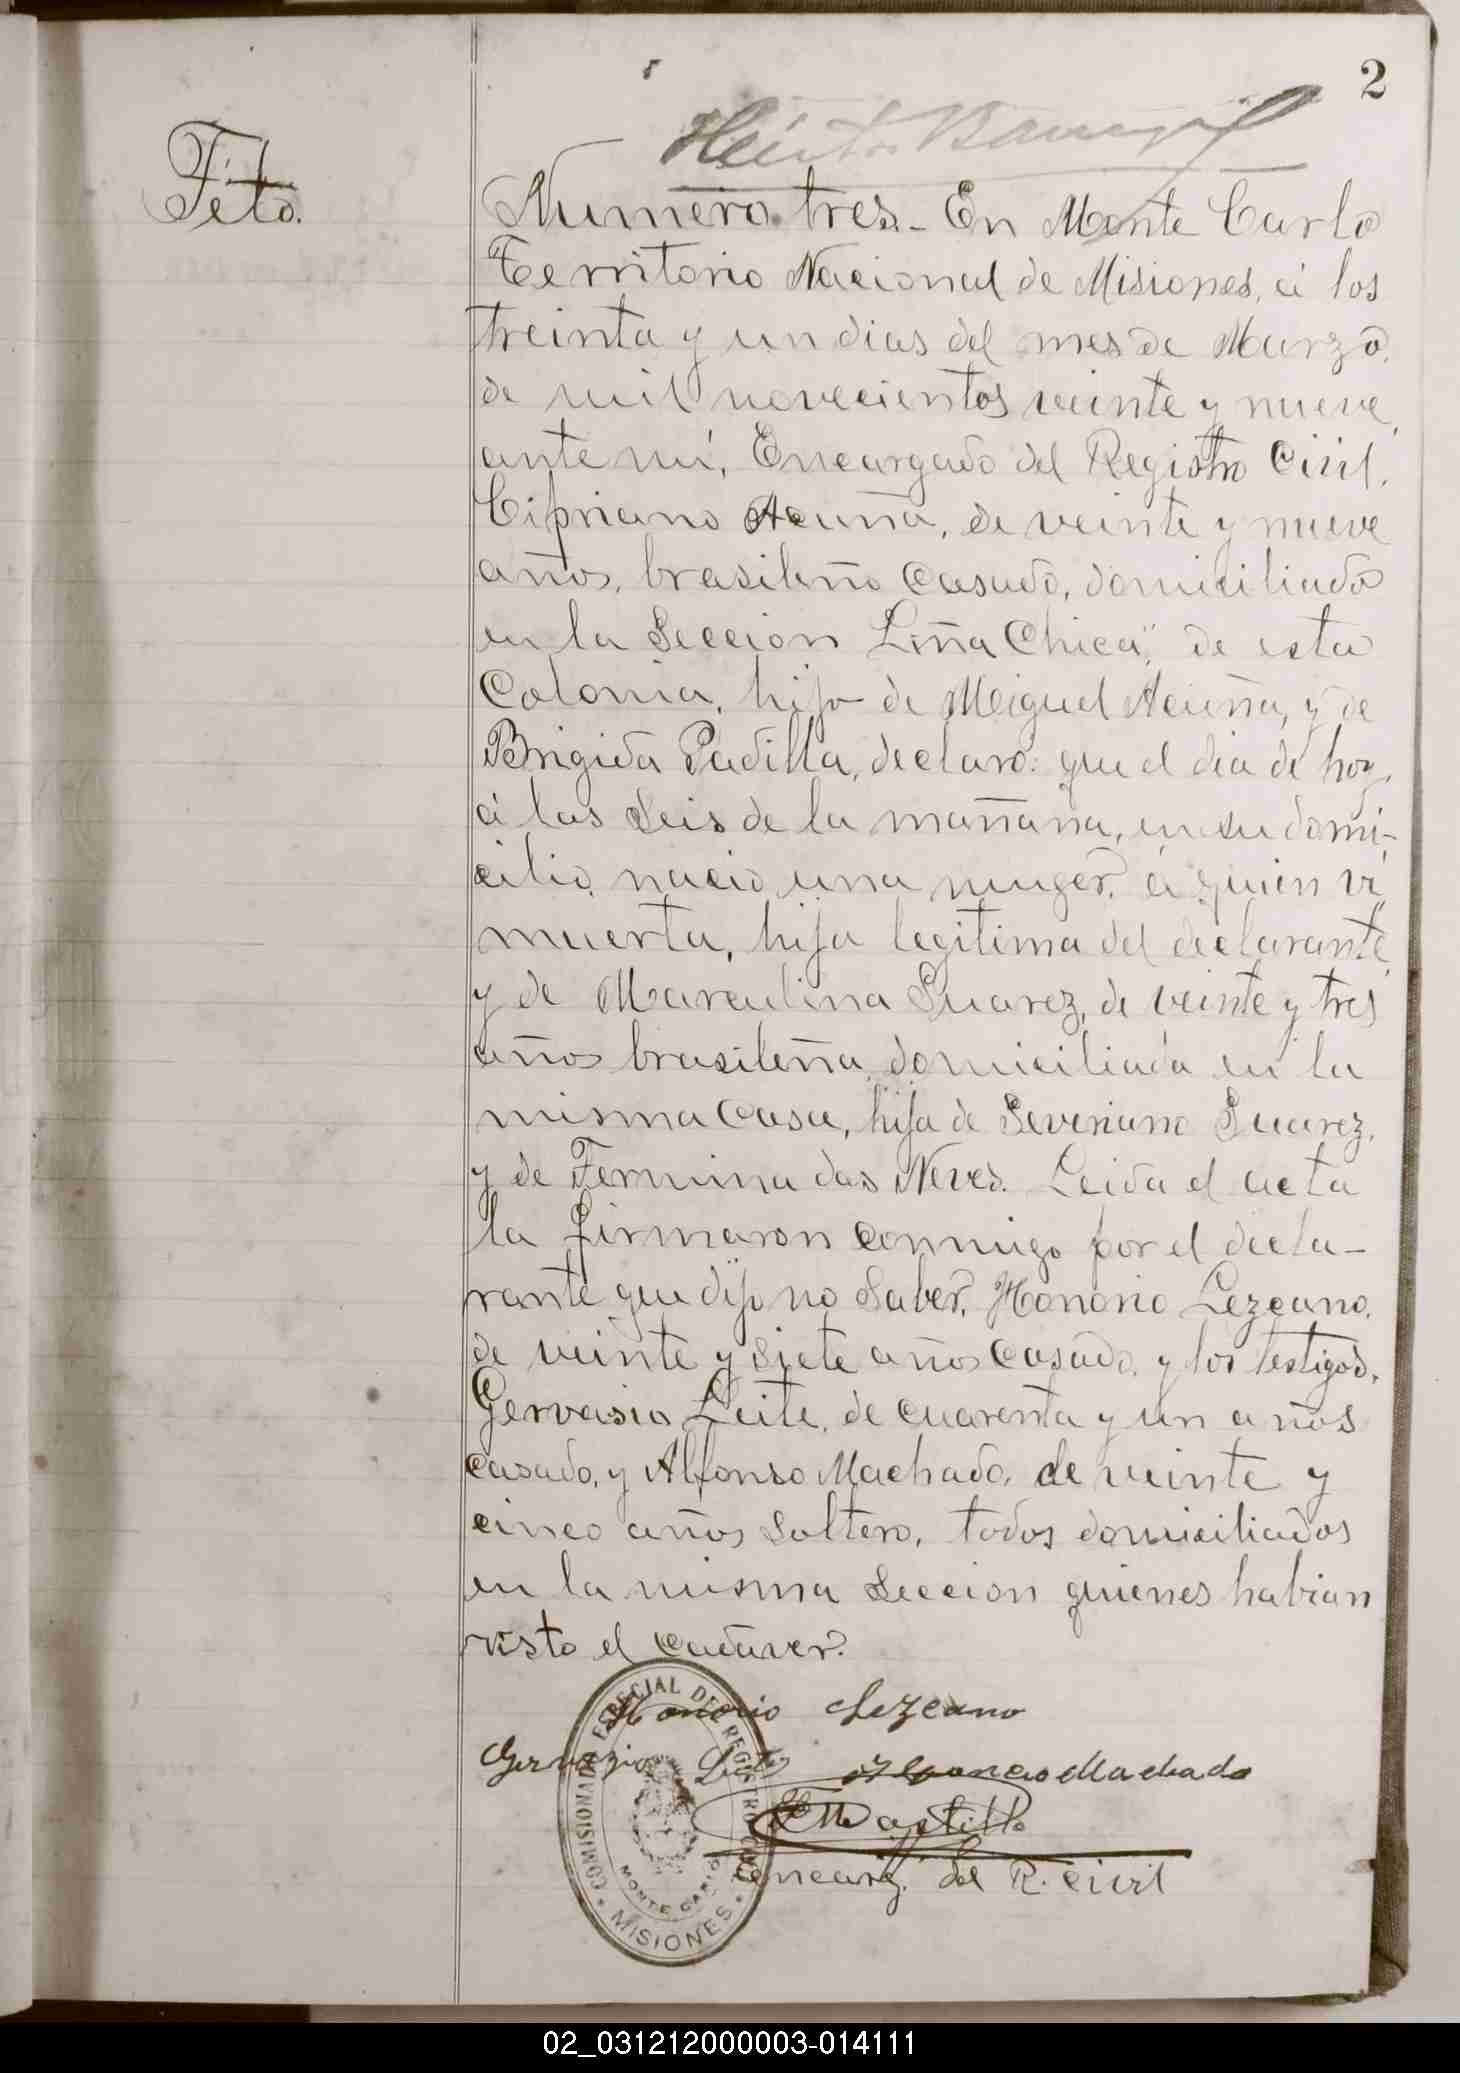 2
Feto.
Numero tres.- En Monte Carlo
Territorio Nacional de Misiones, á los
treinta y un dias del mes de Marzo,
de mil novecientos veinte y nueve,
ante mi, Encargado del Registro Civil,
Cipriano Acuña, de veinte y nueve
años, brasileño casado, domiciliado
en la Seccion "Liña Chica", de esta
Colonia, hijo de Miguel Acuña, y de
Brigida Padilla, declaro: que el dia de hoy,
á las seis de la mañana, en su domi-
cilio, nacio una muger, á quien vi
muerta, hija legitima del declarante,
y de Marculina Suarez, de veinte y tres
años brasileña, domiciliada en la
misma casa, hija de Severiano Suarez,
y de Fermina das Neves. Leida el acta
la firmaron conmigo por el decla-
rante que dijo no saber, Honorio Lezcano,
de veinte y siete años casado, y los testigos,
Gervasio Leite, de cuarenta y un años
casado, y Alfonso Machado, de veinte y
cinco años soltero, todos domiciliados
en la misma seccion quienes habian
visto el cadaver.
Honorio Lezcano
Gervazio Leite Machado
Castillo
encarg. del R. Civil
COMISIONADO ESPECIAL DEL REGISTRO CIVIL
MONTE CARLO
MISIONES
02_031212000003-014111